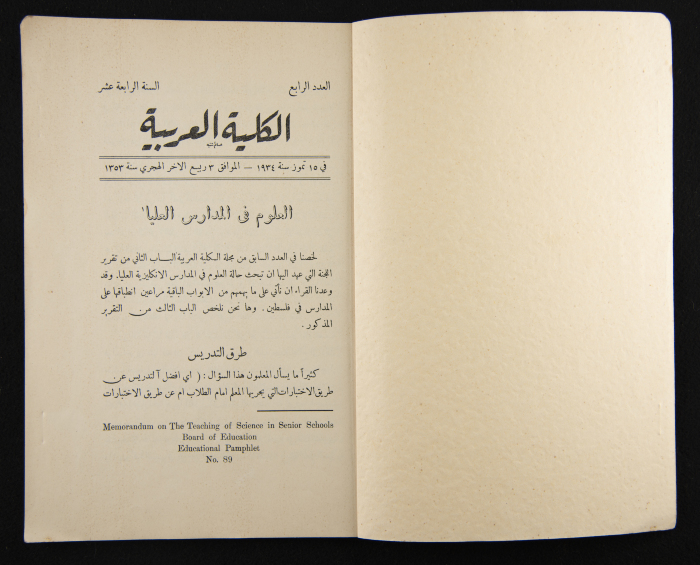 العدد الرابع السنة الرابعة عشر
الكلية العربية
في ١٥ تموز سنة ١٩٣٤ — الموافق ٣ ربيع الاخر الهجري سنة ١٣٥٣
العلوم في المدارس العليا
لخصنا في العدد السابق من مجلة الكلية العربية الباب الثاني من تقرير
اللجنة التي عهد اليها ان تبحث حالة العلوم في المدارس الانكليزية العليا. وقد
وعدنا القراء ان نأتي على ما يهمهم من الابواب الباقية مراعين انطباقها على
المدارس في فلسطين. وها نحن نلخص الباب الثالث من التقرير
المذكور.
طرق التدريس
كثيراً ما يسأل المعلمون هذا السؤال : ( اي افضل آلتدريس عن
طريق الاختبارات التي يجريها المعلم امام الطلاب ام عن طريق الاختبارات
Memorandum on The Teaching of Science in Senior Schools
Board of Education
Educational Pamphlet
No. 89